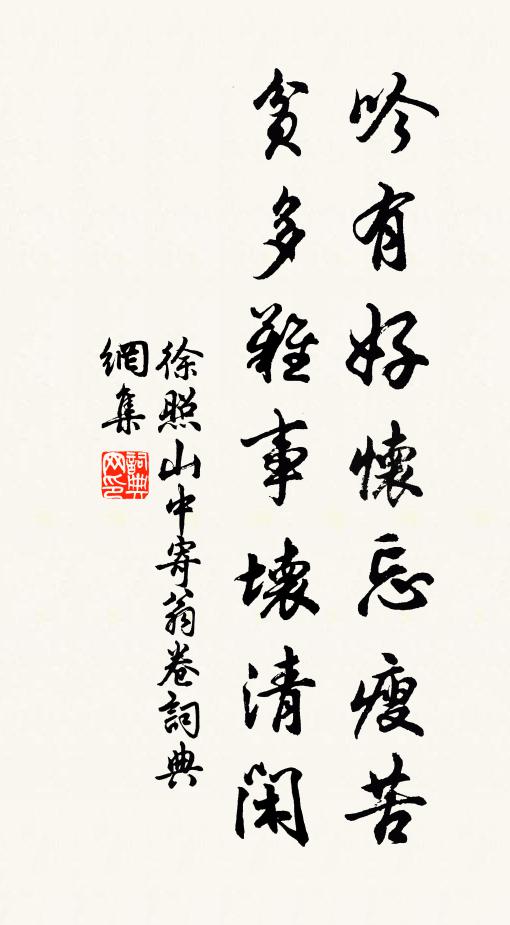 吟有好懷忘瘦苦
貧多難事壞清閑
徐照山中寄翁卷詞典
網集
詞典
网印